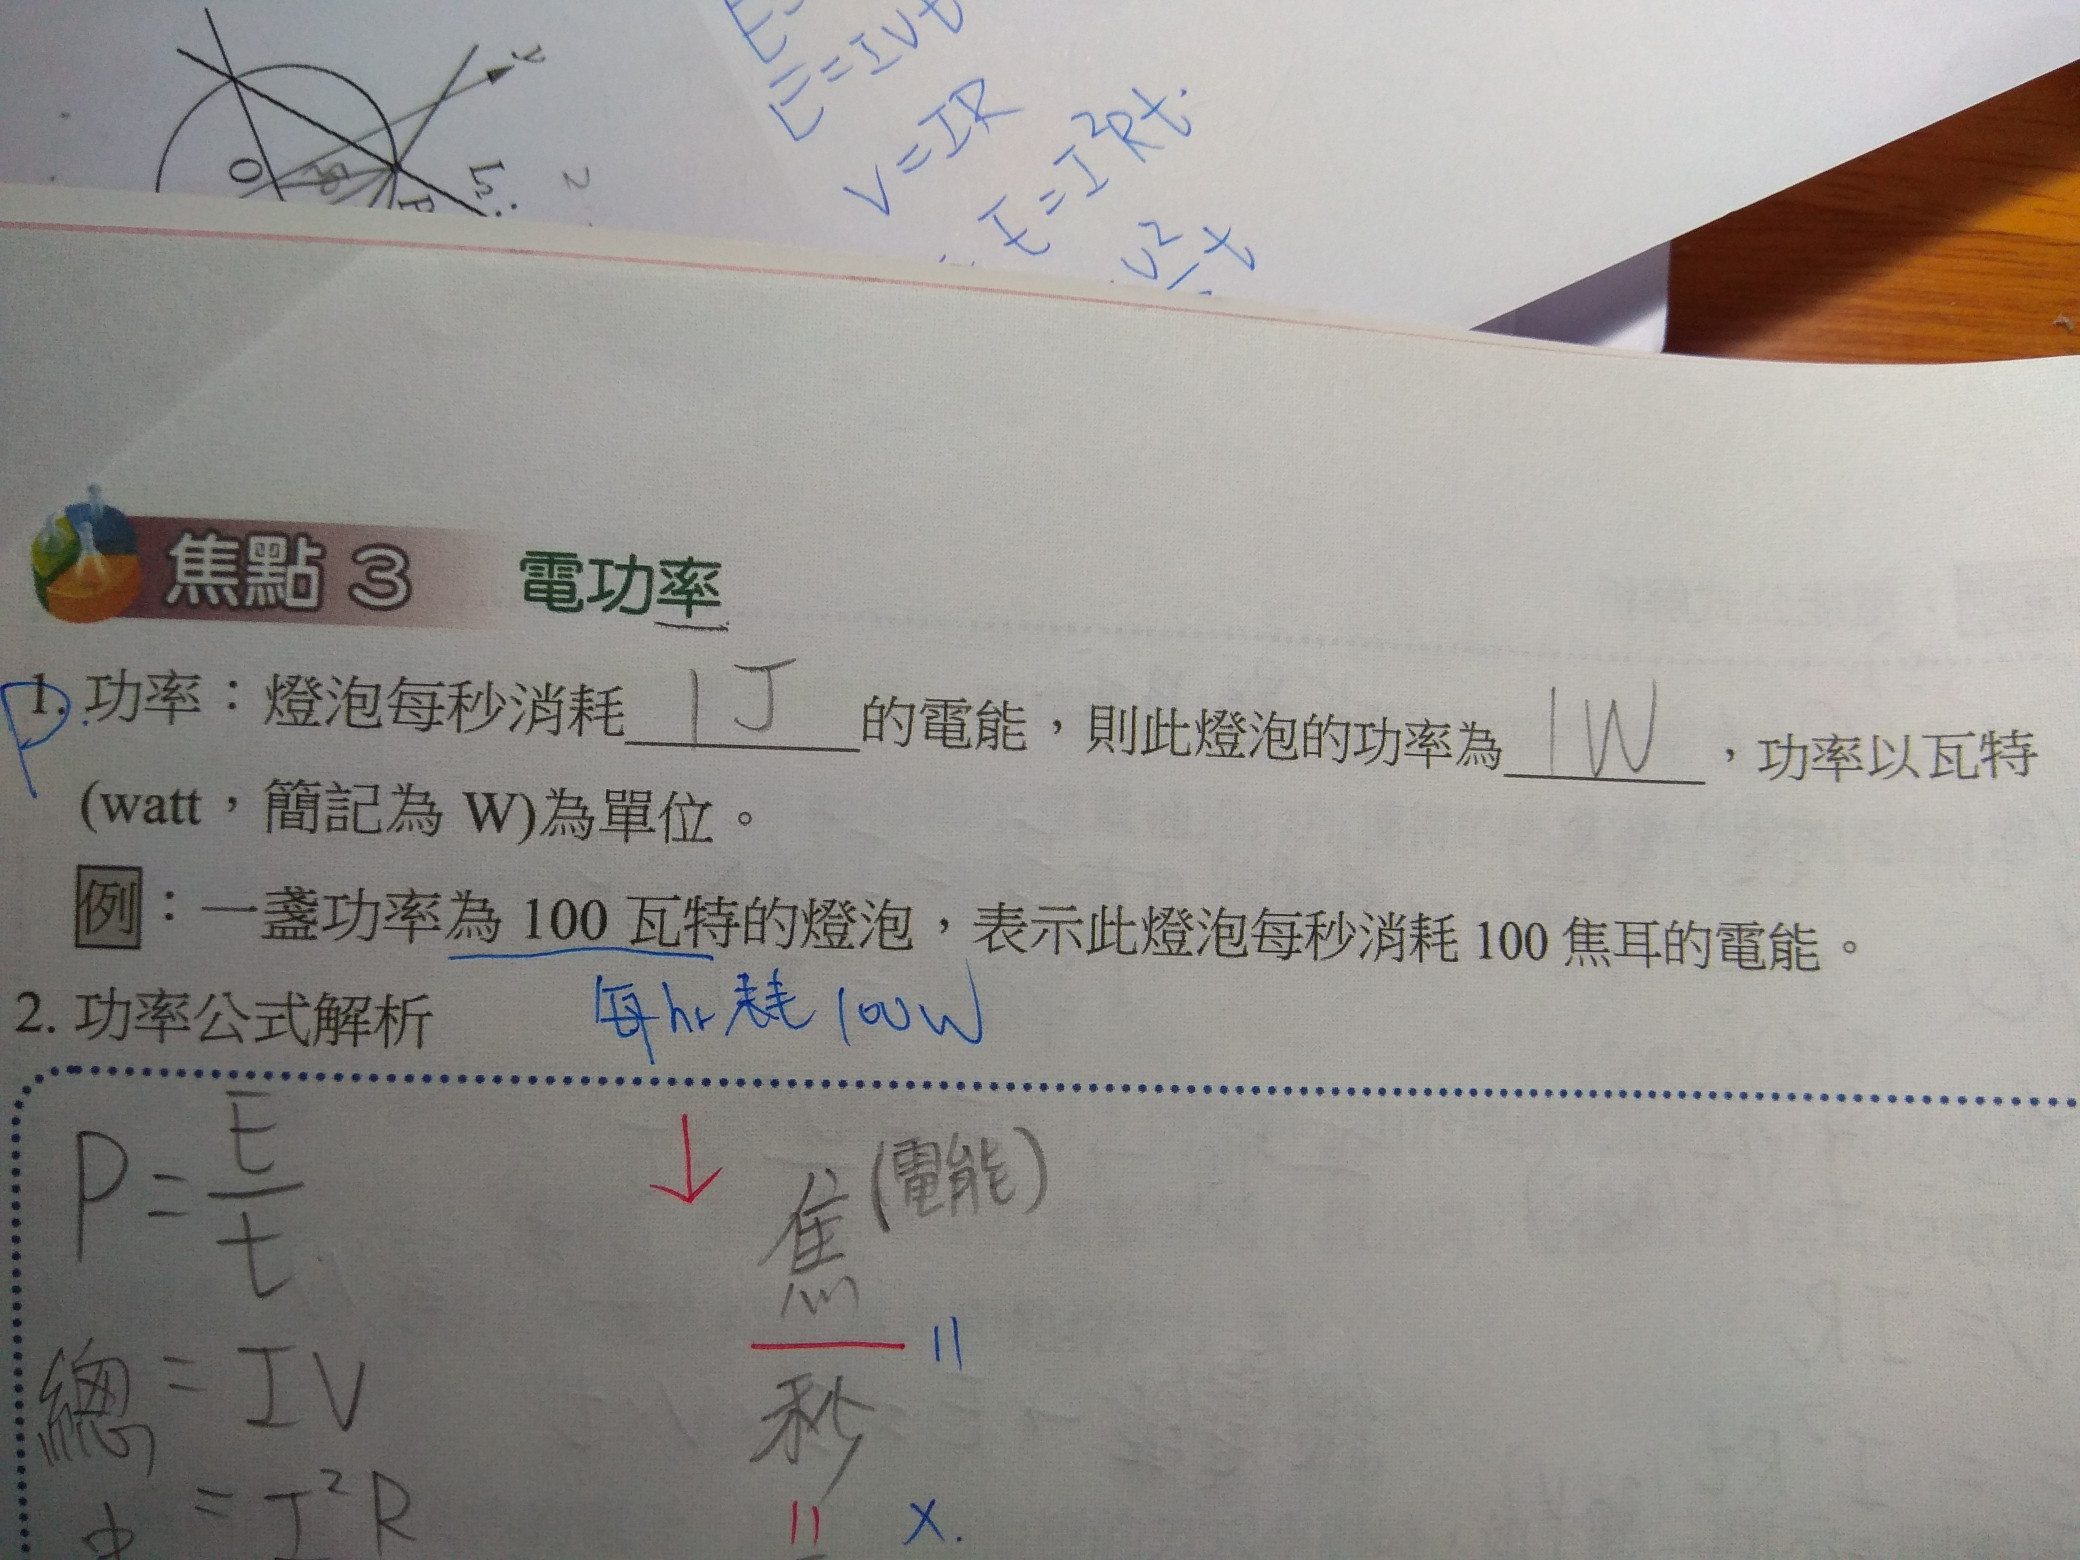 E=IVt
V=IR
E=I²Rt.
V² t
y
O
L₂:
P
2
焦點 3 電功率
P
1. 功率：燈泡每秒消耗 1J 的電能，則此燈泡的功率為 1W ，功率以瓦特
(watt，簡記為 W)為單位。
例：一盞功率為 100 瓦特的燈泡，表示此燈泡每秒消耗 100 焦耳的電能。
每hr耗 100W
2. 功率公式解析
P=E/t
焦(電能)
秒
總 = IV
= I²R
x.